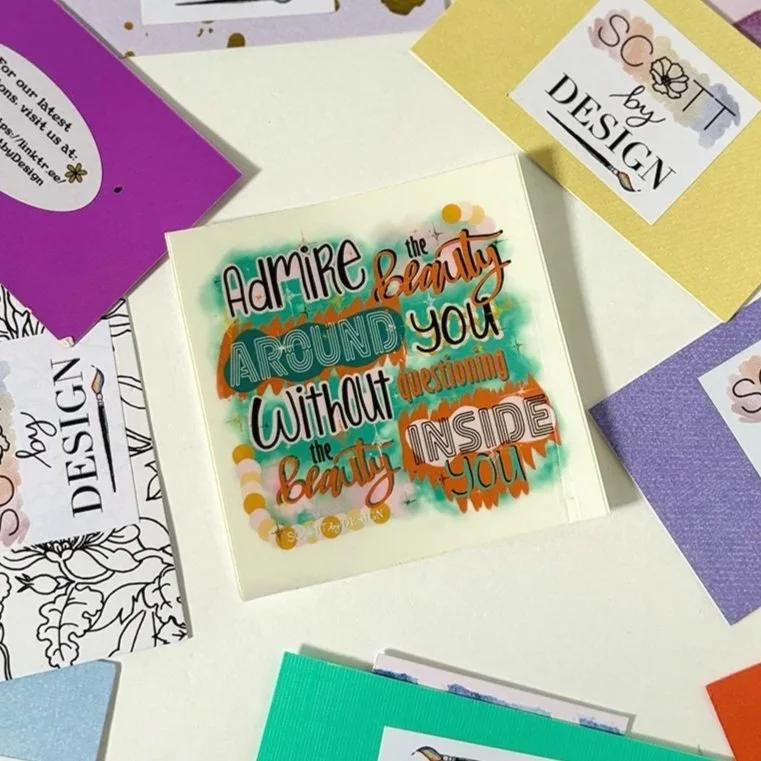 For our latest
visit us at:
SCOTT
by
DESIGN
Admire the Beauty
AROUND YOU
Without questioning
the Beauty INSIDE YOU
SCOTT by DESIGN
by
DESIGN